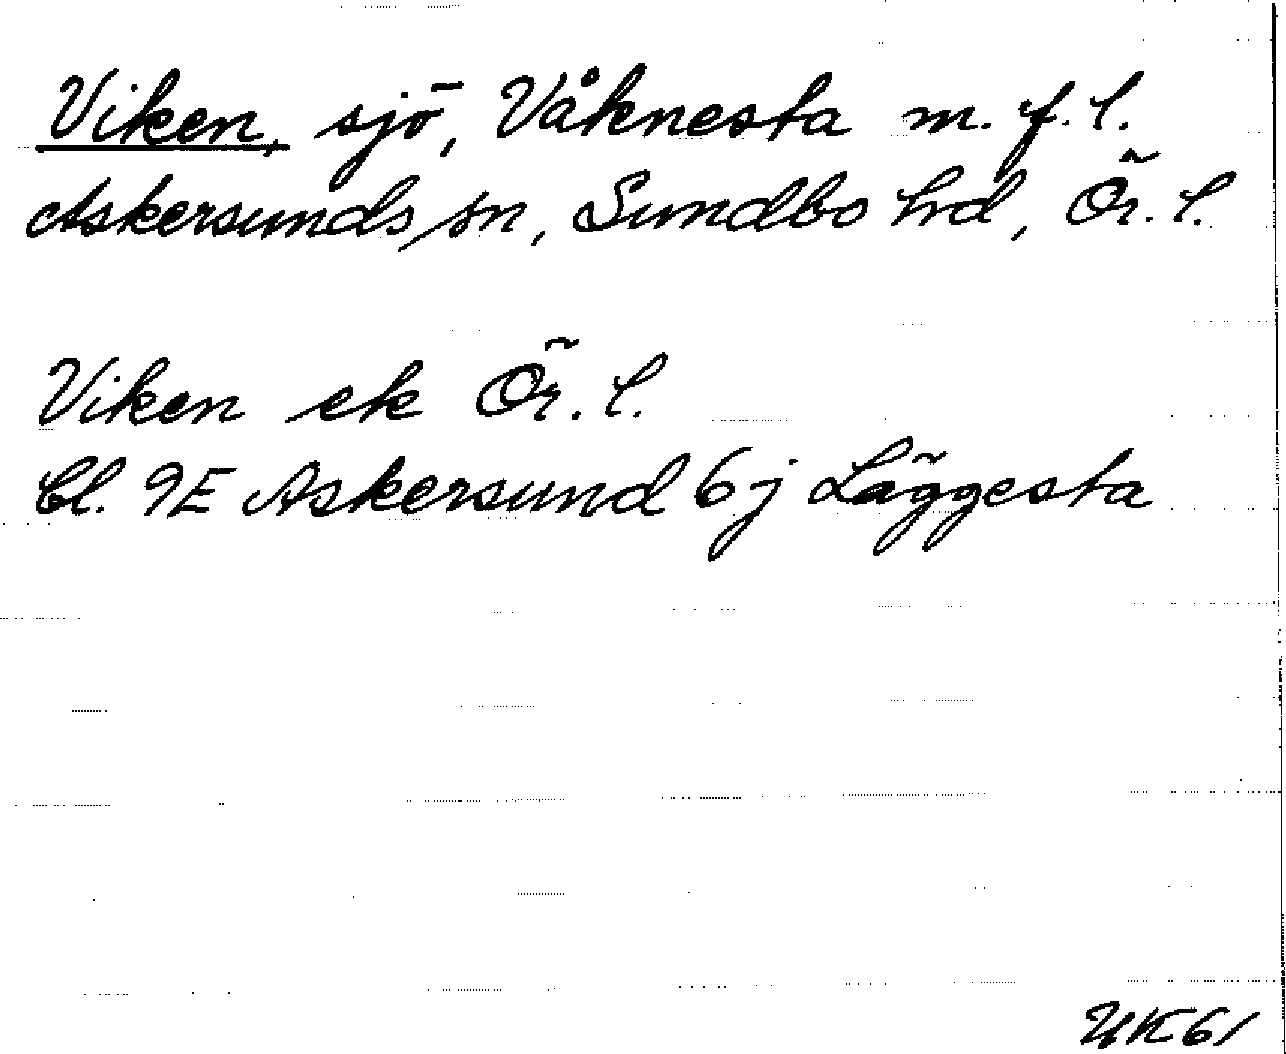 Viken, sjö, Våknesta m. f. l.
Askersunds sn, Sundbo hd, Ör. l.
Viken ek Ör. l.
Bl. 9E Askersund 6j Läggesta
UK61